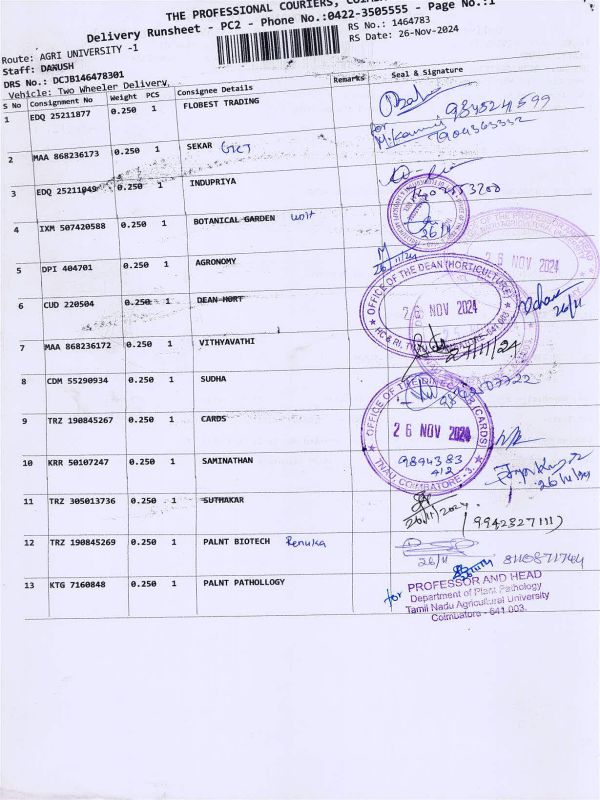 THE PROFESSIONAL COURIERS,
Delivery Runsheet - PC2 - Phone No.:0422-3505555 - Page No.:1
RS No.: 1464783
RS Date: 26-Nov-2024
Route: AGRI UNIVERSITY -1
Staff: DAKUSH
DRS No.: DCJB146478301
Vehicle: Two Wheeler Delivery,
S No Consignment No Weight PCS Consignee Details Remarks Seal & Signature
1 EDQ 25211877 0.250 1 FLOBEST TRADING
for
2 MAA 868236173 0.250 1 SEKAR
3 EDQ 25211949 0.250 1 INDUPRIYA
4 IXM 507420588 0.250 1 BOTANICAL GARDEN unit
26/11
5 DPI 404701 0.250 1 AGRONOMY
26/11/24
26 NOV 2024
6 CUD 220504 0.250 1 DEAN HORT
OFFICE OF THE DEAN (HORTICULTURE)
26 NOV 2024
26/11
7 MAA 868236172 0.250 1 VITHYAVATHI
27/11/24
8 CDM 55290934 0.250 1 SUDHA
9 TRZ 190845267 0.250 1 CARDS
OFFICE OF THE DIRECTOR (CARDS)
26 NOV 2024
TNAU, COIMBATORE - 3.
10 KRR 50107247 0.250 1 SAMINATHAN
9894383
412
26/11/24
11 TRZ 305013736 0.250 1 SUTHAKAR
26/11/2024
(9942827111)
12 TRZ 190845269 0.250 1 PALNT BIOTECH Renuka
26/11 8110871744
13 KTG 7160848 0.250 1 PALNT PATHOLLOGY
for PROFESSOR AND HEAD
Department of Plant Pathology
Tamil Nadu Agricultural University
Coimbatore - 641 003.